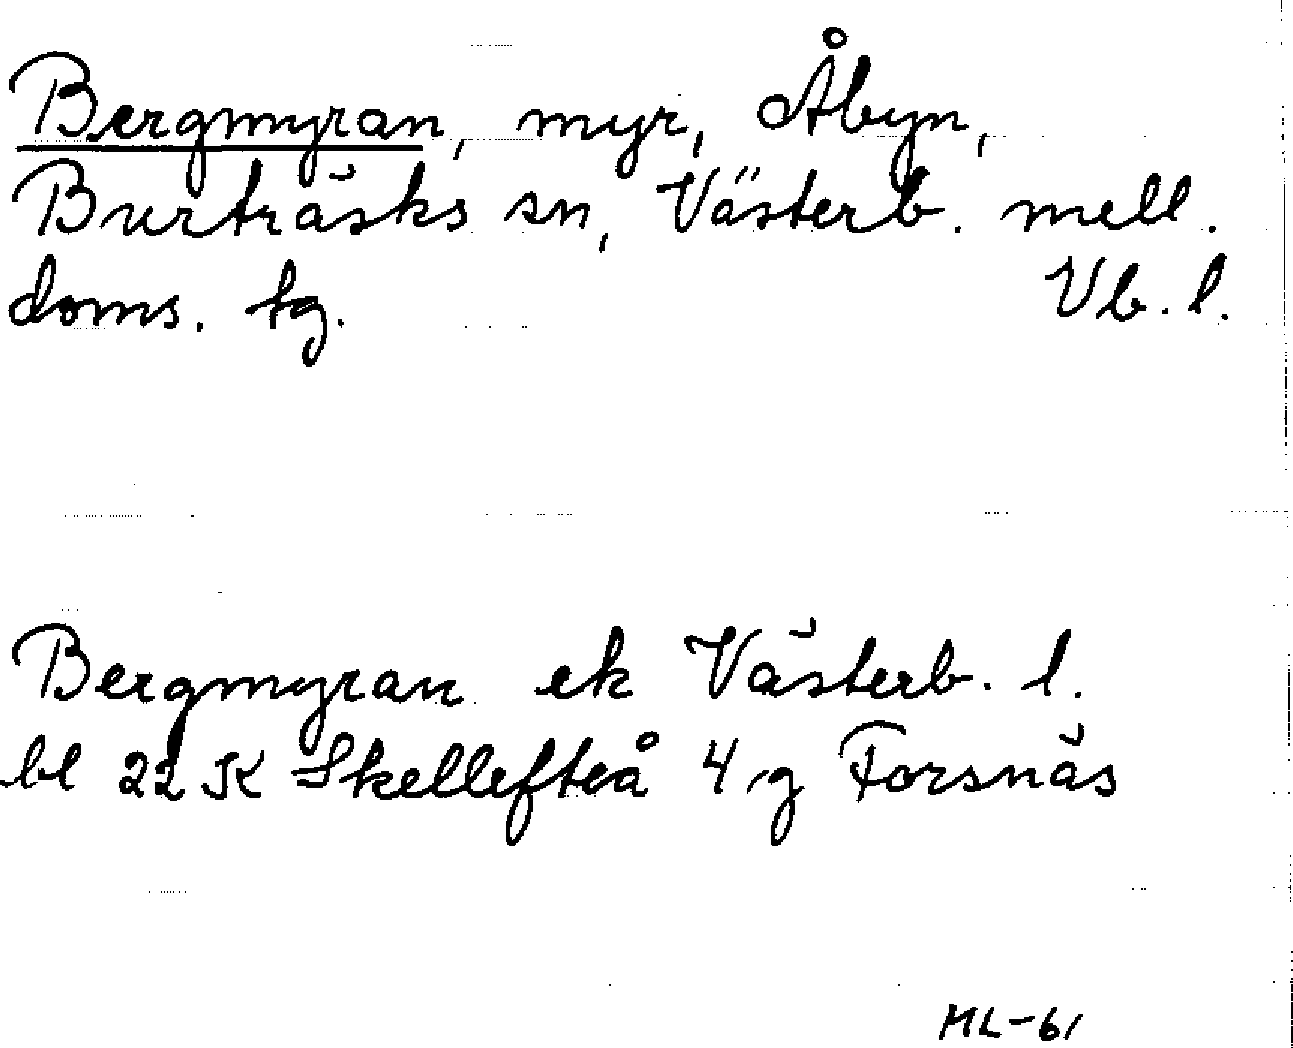 Bergmyran, myr, Åbyn,
Burträsks sn, Västerb. mell.
doms. tg. Vb. l.
Bergmyran ek Västerb. l.
bl 22 K Skellefteå 4 g Forsnäs
HL-61